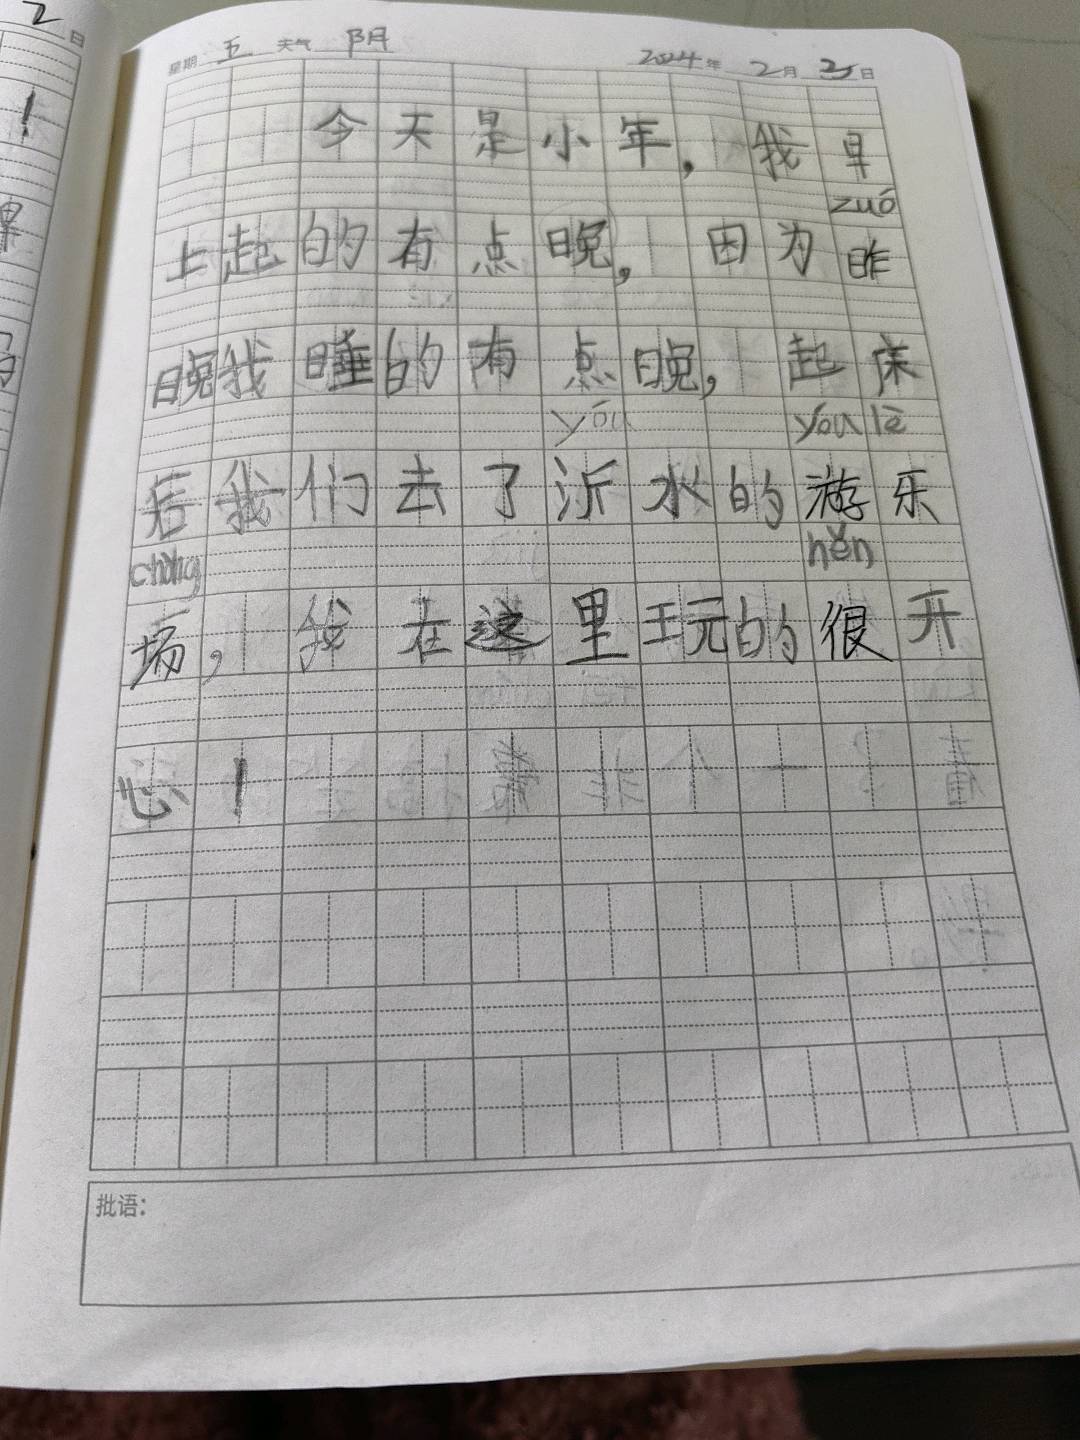 2日
！
星期 五 天气 阴 2024年 2月 2日
今天是小年，我早
zuó
上起的有点晚，因为昨
晚我睡的有点晚，起床
yóu yóu lè
后我们去了沂水的游乐
chǎng hěn
场，我在这里玩的很开
心！
批语：